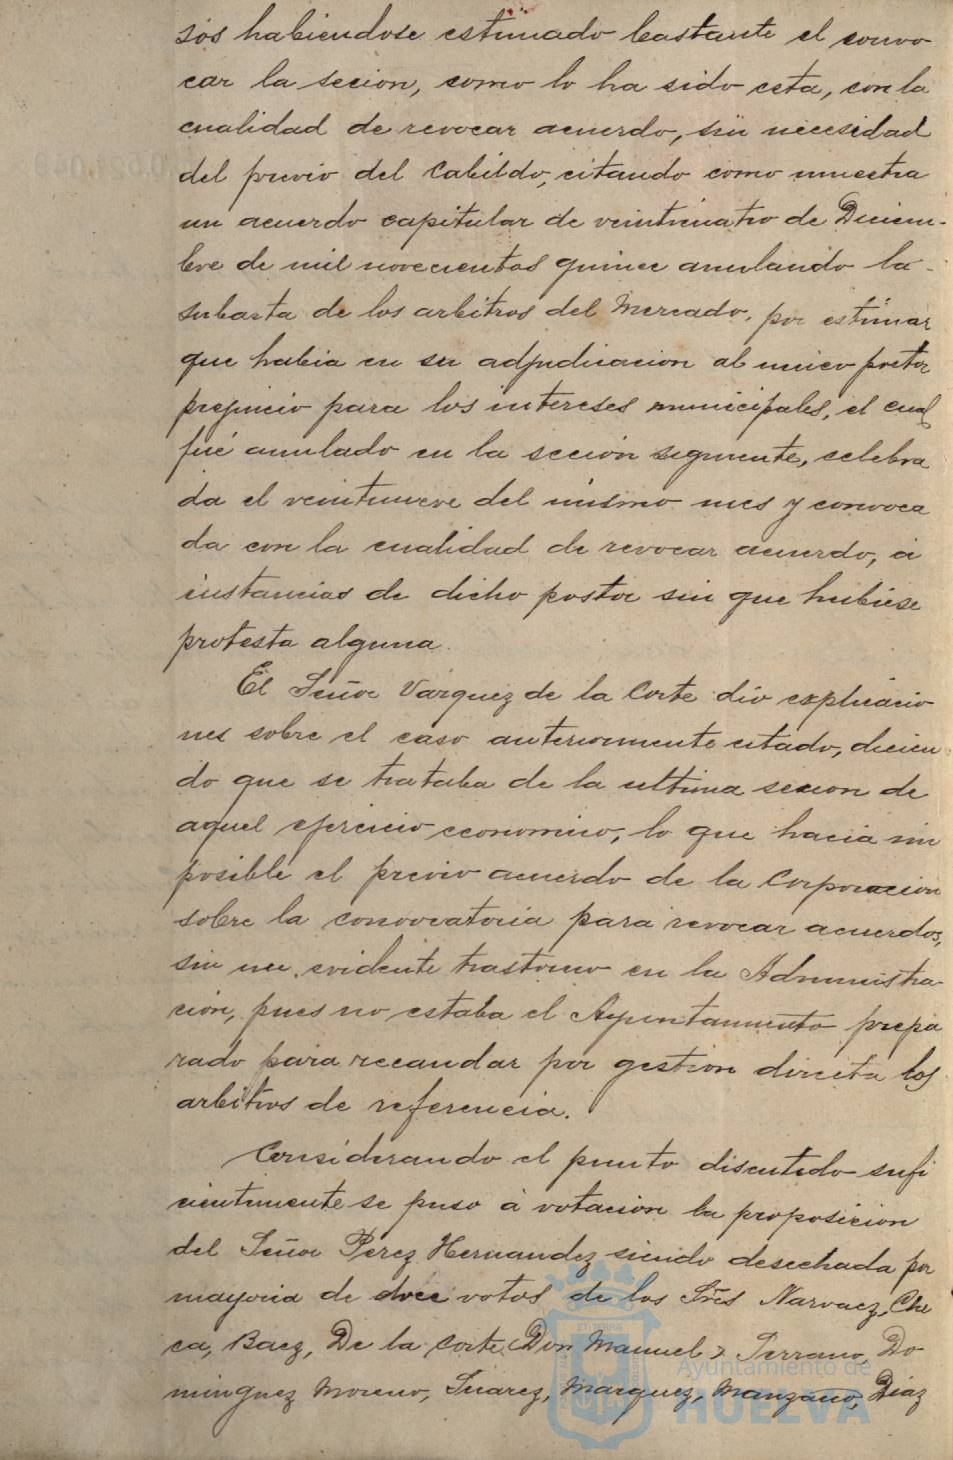 sos habiendose estimado bastante el convo
car la secion, como lo ha sido esta, con la
cualidad de revocar acuerdo, sin necesidad
del previo del Cabildo, citando como muestra
un acuerdo capitular de veinticuatro de Diciem-
bre de mil novecientos quince anulando la
subasta de los arbitros del Mercado, por estimar
que habia en su adjudicacion al unico postor
prejuicio para los intereses municipales, el cual
fué anulado en la seccion siguiente, celebra
da el veintinueve del mismo mes y convoca
da con la cualidad de revocar acuerdo, á
instancias de dicho postor sin que hubiese
protesta alguna.
El Señor Vazquez de la Corte dió explicacio
nes sobre el caso anteriormente citado, dicien
do que se trataba de la ultima sesion de
aquel ejercicio economico, lo que hacia im
posible el previo acuerdo de la Corporacion
sobre la convocatoria para revocar acuerdos,
sin un evidente trastorno en la Administra-
cion, pues no estaba el Ayuntamiento prepa
rado para recaudar por gestion directa los
arbitros de referencia.
Considerando el punto discutido sufi
cientemente se puso á votacion la proposicion
del Señor Perez Hernandez siendo desechada por
mayoria de doce votos de los Sres Narvaez, Che
ca, Baez, De la Corte (Don Manuel), Serrano, Do
minguez Moreno, Suarez, Marquez, Manzano, Diaz
Ayuntamiento de
HUELVA